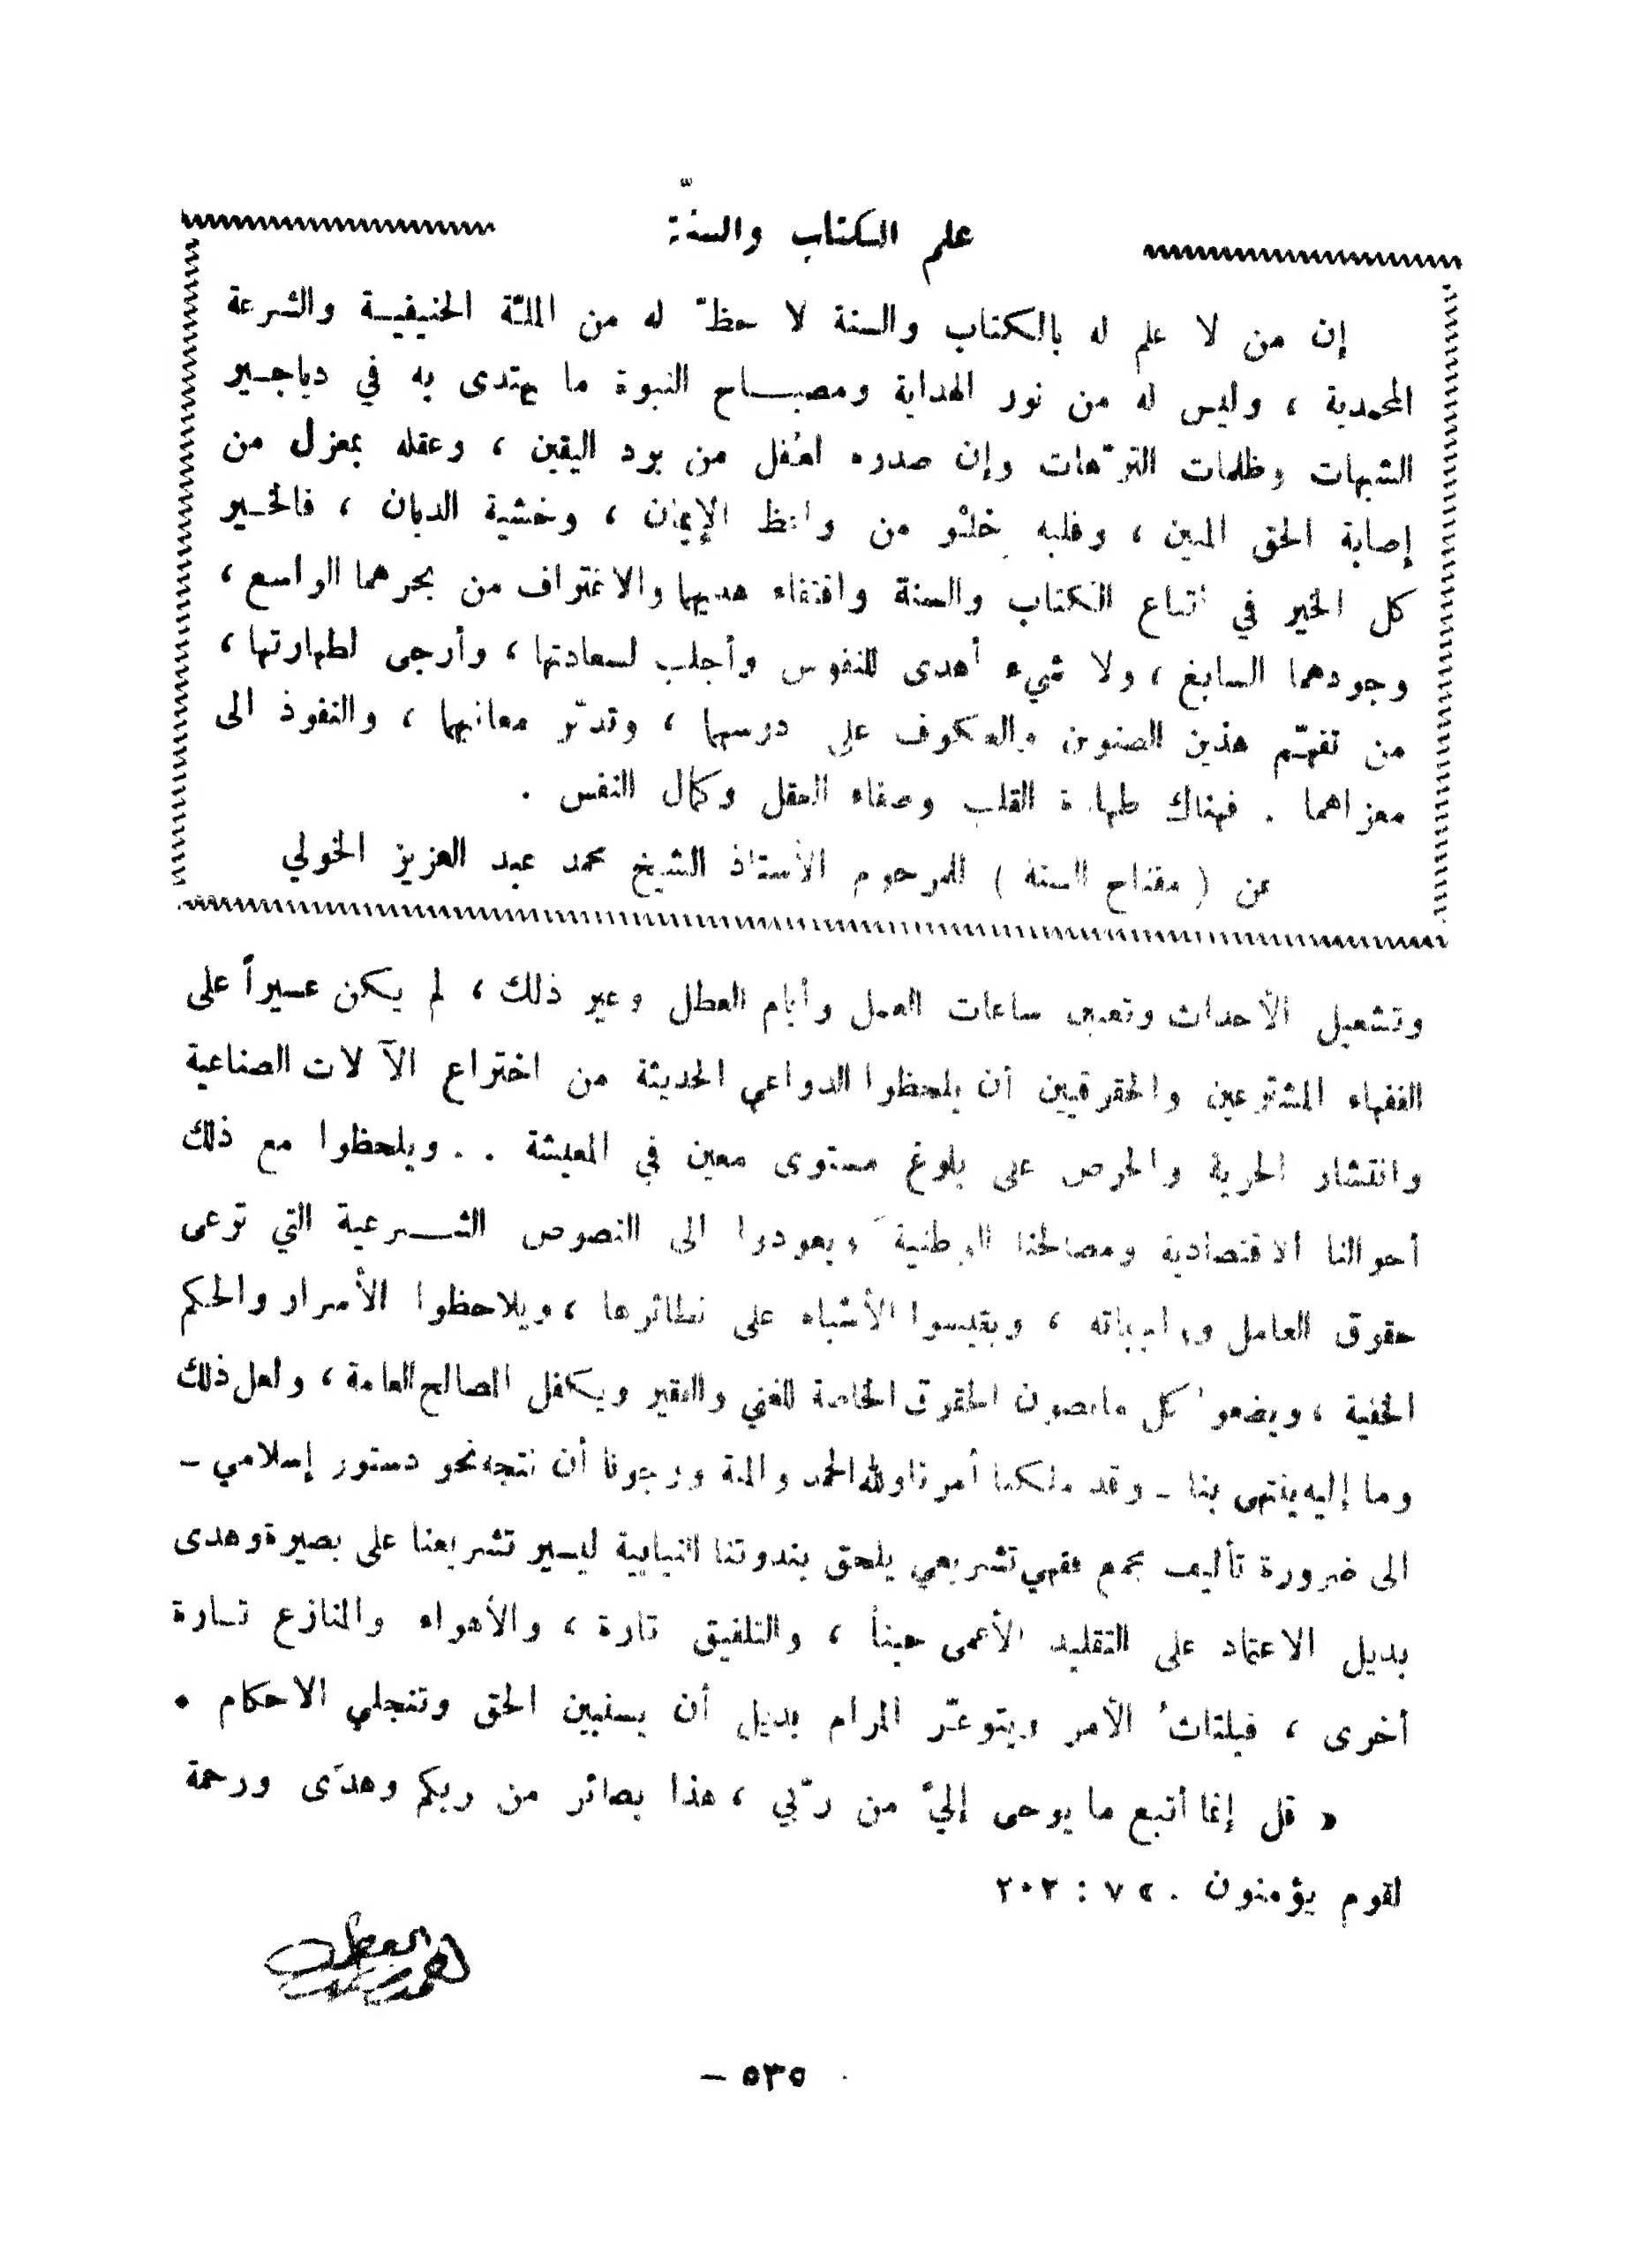 علم الكتاب والسنّة
إن من لا علم له بالكتاب والسنة لا حظّ له من الملّة الحنيفية والشرعة
المحمدية ، وليس له من نور الهداية ومصباح النبوة ما يهتدى به في دياجير
الشبهات وظلمات الترّهات وإن صدره لمُفل من برد اليقين ، وعقله بمعزل من
إصابة الحق المبين ، وقلبه خِلْو من واعظ الإيمان ، وخشية الديان ، فالخير
كل الخير في اتباع الكتاب والسنة واقتفاء هديهما والاغتراف من بحرهما الواسع ،
وجودهما السابغ ، ولا شيء أهدى للنفوس وأجلب لسعادتها ، وأرجى لطهارتها ،
من تفهّم هذين الصنوين والعكوف على درسهما ، وتدبّر معانيهما ، والنفوذ الى
مغزاهما . فهناك طهارة القلب وصفاء العقل وكمال النفس .
عن ( مفتاح السنة ) للمرحوم الأستاذ الشيخ محمد عبد العزيز الخولي
وتشغيل الأحداث وتعيين ساعات العمل وأيام العطل وغير ذلك ، لم يكن عسيراً على
الفقهاء المشترعين والحقوقيين أن يلحظوا الدواعي الحديثة من اختراع الآلات الصناعية
وانتشار الحرية والحرص على بلوغ مستوى معين في المعيشة . . ويلحظوا مع ذلك
أحوالنا الاقتصادية ومصالحنا الوطنية ويعودوا الى النصوص الشرعية التي ترعى
حقوق العامل وواجباته ، ويقيسوا الأشباه على نظائرها ، ويلاحظوا الأسرار والحكم
الخفية ، ويضعوا كل مايصون الحقوق الخاصة للغني والفقير ويكفل المصالح العامة ، ولعل ذلك
وما إليه ينتهي بنا ــ وقد ملكنا أمرنا ولله الحمد والمنة ورجونا أن نتجه نحو دستور إسلامي ــ
الى ضرورة تأليف مجمع فقهي تشريعي يلحق بندوتنا النيابية ليسير تشريعنا على بصيرة وهدى
بديل الاعتماد على التقليد الأعمى حيناً ، والتلفيق تارة ، والأهواء والمنازع تارة
أخرى ، فيلتاثُ الأمر ويتوعّر المرام بديل أن يستبين الحق وتنجلي الاحكام .
« قل إنما أتبع ما يوحى إليّ من ربّي ، هذا بصائر من ربكم وهدًى ورحمة
لقوم يؤمنون . » ٧ : ٢٠٢
٥٣٥ –